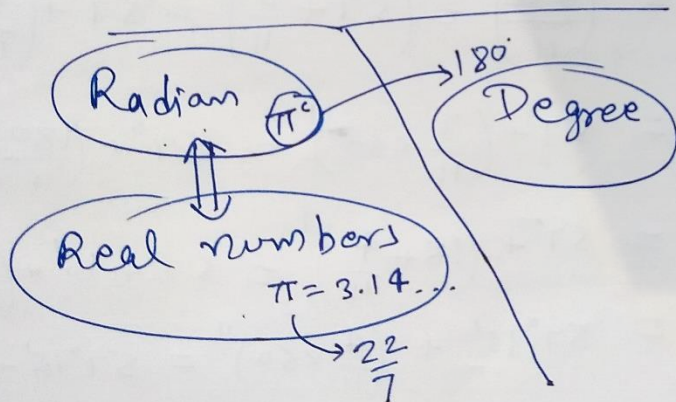 Radian πᶜ
180°
Degree
Real numbers
π = 3.14...
22
7